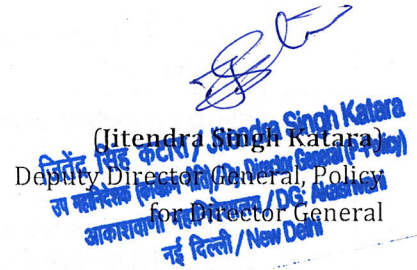 (Jitendra Singh Katara)
Deputy Director General, Policy
for Director General
जितेंद्र सिंह कटारा / Jitendra Singh Katara
उप महानिदेशक / Dy. Director General
आकाशवाणी महानिदेशालय / DG: Akashvani
नई दिल्ली / New Delhi